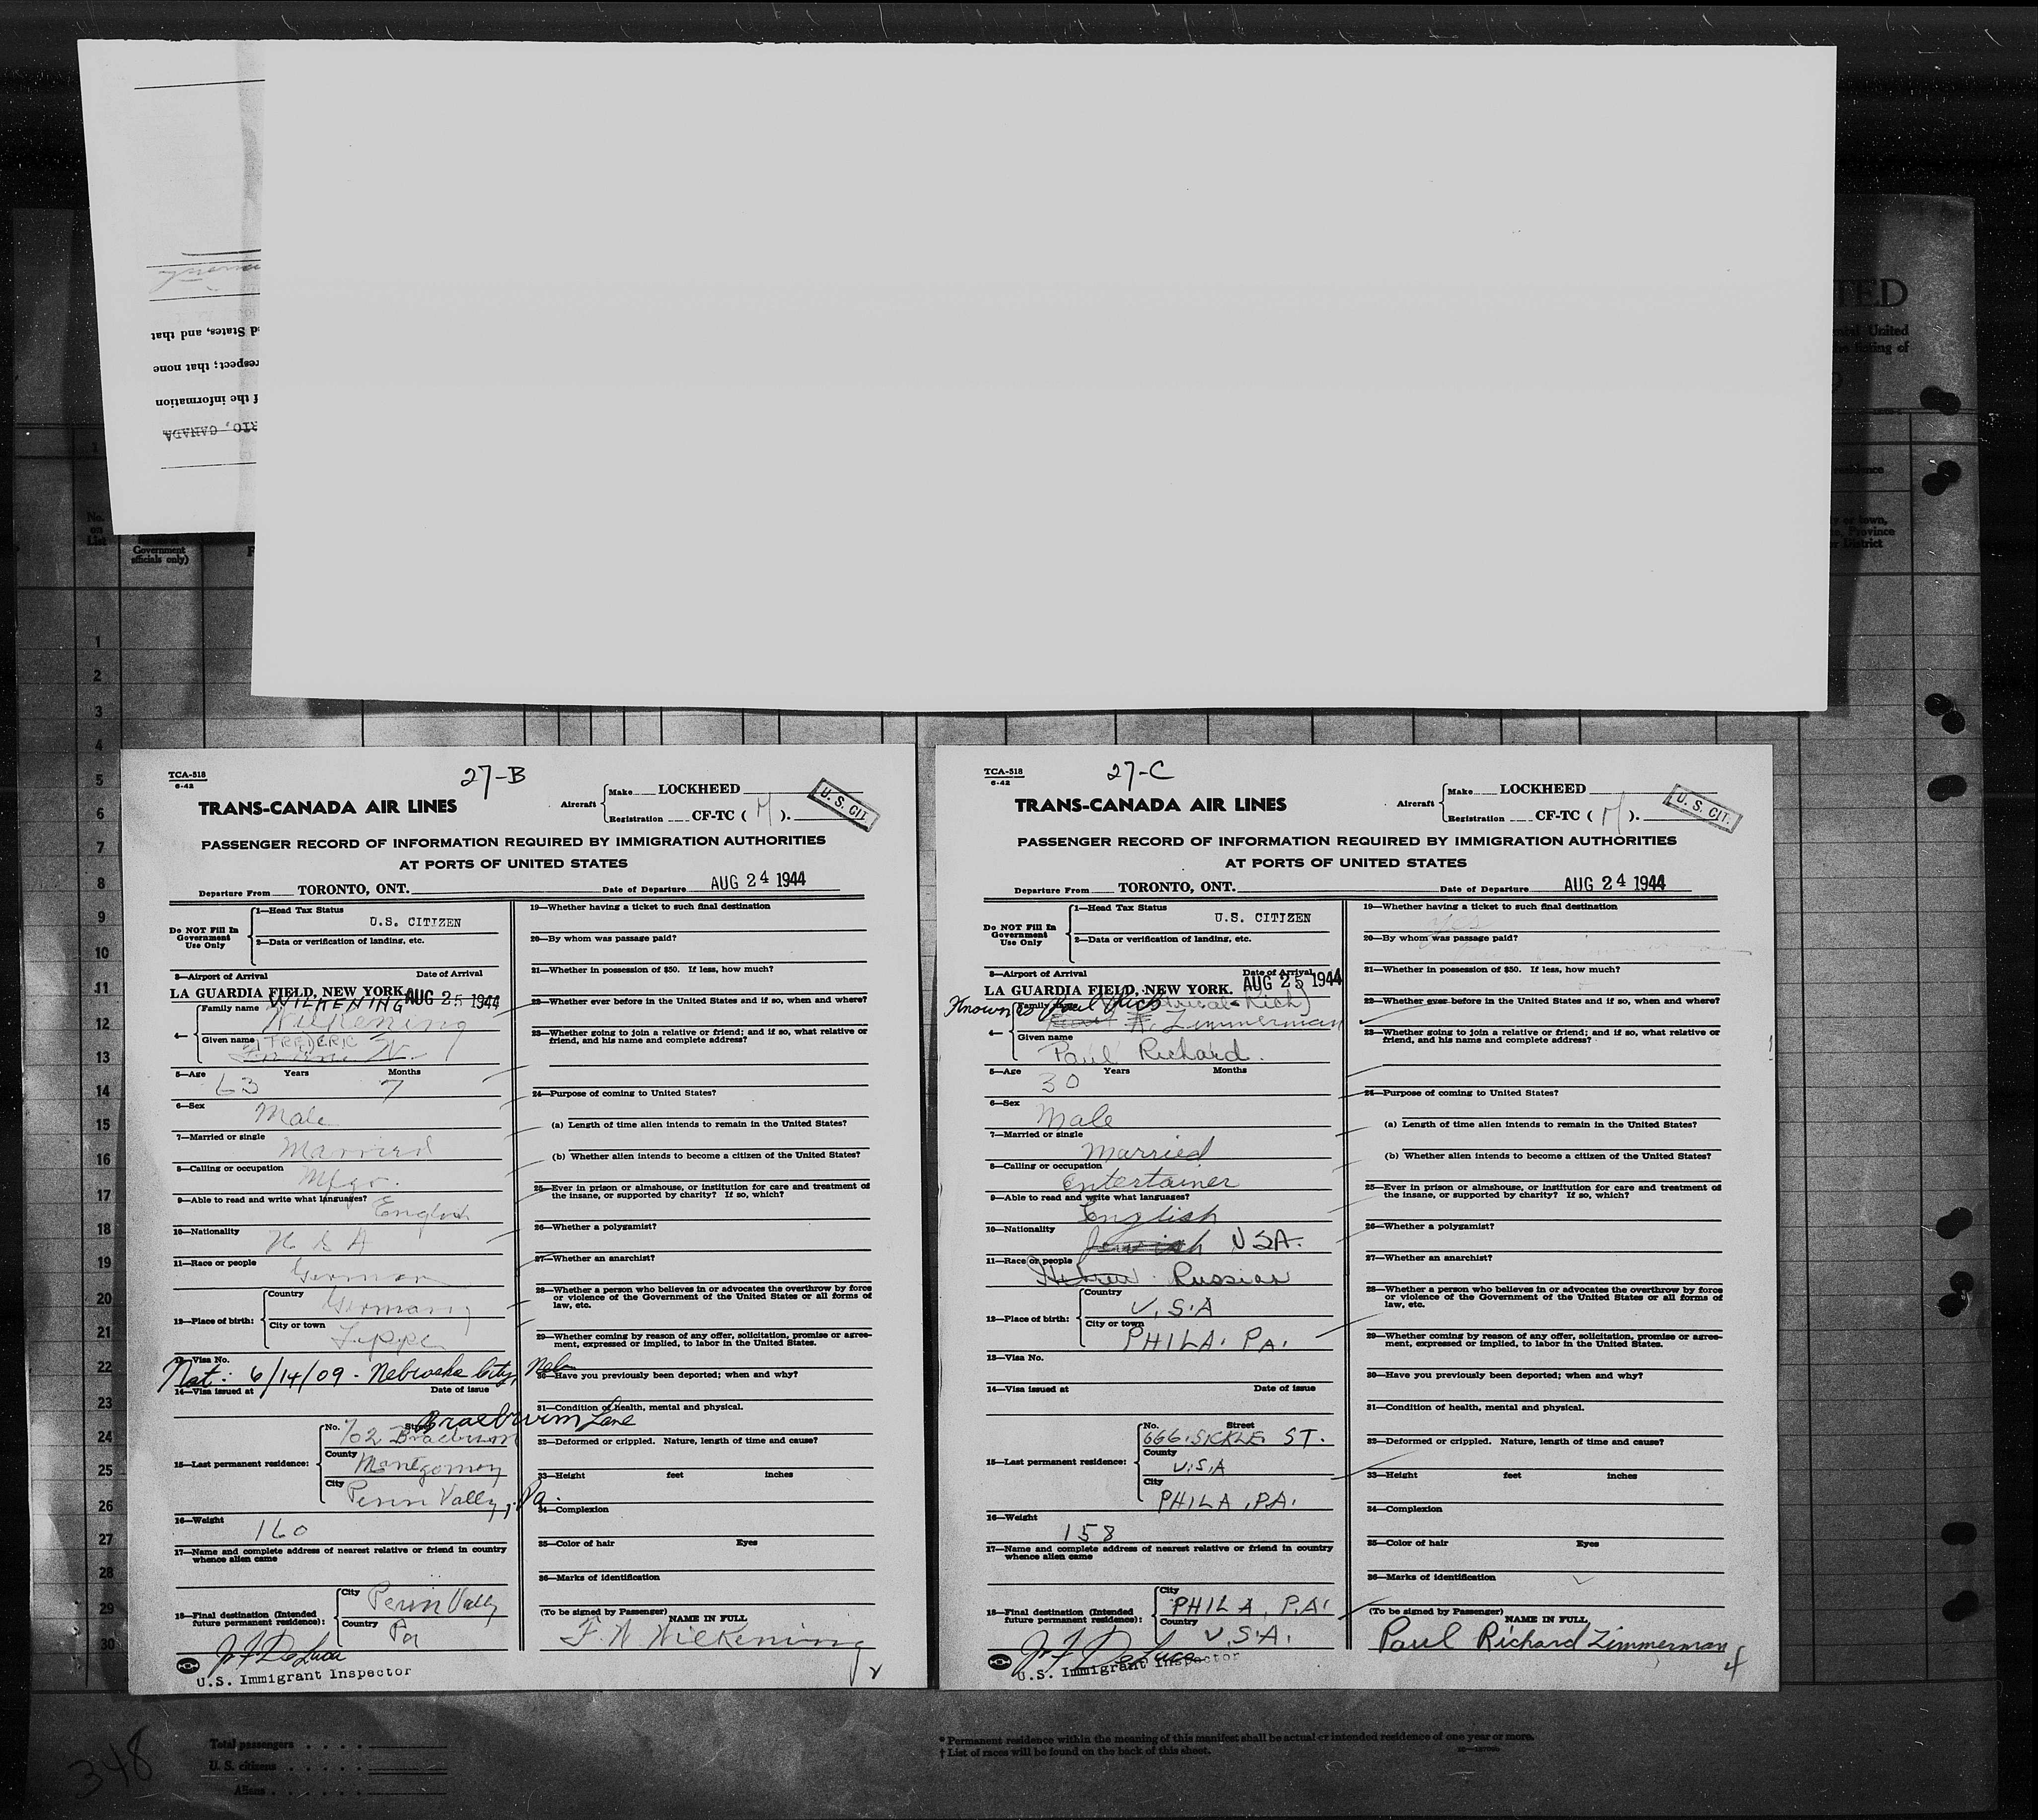 TED
United
No.
on
List
Government
officials only)
d States, and that
respect; that none
f the information
RIO, CANADA
or town,
Province
District
1
2
3
4
5
6
7
8
9
10
11
12
13
14
15
16
17
18
19
20
21
22
23
24
25
26
27
28
29
30
TCA-518
6-42
27-B
TRANS-CANADA AIR LINES
Aircraft
Make LOCKHEED
Registration CF-TC ( M ).
U. S. CIT.
PASSENGER RECORD OF INFORMATION REQUIRED BY IMMIGRATION AUTHORITIES
AT PORTS OF UNITED STATES
Departure From TORONTO, ONT. Date of Departure AUG 24 1944
Do NOT Fill In
Government
Use Only
1—Head Tax Status
U.S. CITIZEN
2—Data or verification of landing, etc.
3—Airport of Arrival Date of Arrival
LA GUARDIA FIELD, NEW YORK. AUG 25 1944
WILKENING
4— Family name Wilkening
Given name FREDERIC
W.
5—Age Years Months
63 7
6—Sex
Male
7—Married or single
Married
8—Calling or occupation
Mfgr.
9—Able to read and write what languages?
English
10—Nationality
U S A
11—Race or people
German
12—Place of birth:
Country
Germany
City or town
Lippe
13—Visa No.
Nat: 6/14/09 - Nebraska City, Neb
14—Visa issued at Date of issue
Braeburn Lane
15—Last permanent residence:
No. Street
702 Braeburn
County
Montgomery
City
Penn Valley, Pa.
16—Weight
160
17—Name and complete address of nearest relative or friend in country
whence alien came
18—Final destination (Intended
future permanent residence):
City
Penn Vally
Country
Pa
J F DeLuca
U.S. Immigrant Inspector
19—Whether having a ticket to such final destination
20—By whom was passage paid?
21—Whether in possession of $50. If less, how much?
22—Whether ever before in the United States and if so, when and where?
23—Whether going to join a relative or friend; and if so, what relative or
friend, and his name and complete address?
24—Purpose of coming to United States?
(a) Length of time alien intends to remain in the United States?
(b) Whether alien intends to become a citizen of the United States?
25—Ever in prison or almshouse, or institution for care and treatment of
the insane, or supported by charity? If so, which?
26—Whether a polygamist?
27—Whether an anarchist?
28—Whether a person who believes in or advocates the overthrow by force
or violence of the Government of the United States or all forms of
law, etc.
29—Whether coming by reason of any offer, solicitation, promise or agree-
ment, expressed or implied, to labor in the United States.
30—Have you previously been deported; when and why?
31—Condition of health, mental and physical.
32—Deformed or crippled. Nature, length of time and cause?
33—Height feet inches
34—Complexion
35—Color of hair Eyes
36—Marks of identification
(To be signed by Passenger)
NAME IN FULL
F. W Wilkening
TCA-518
6-42
27-C
TRANS-CANADA AIR LINES
Aircraft
Make LOCKHEED
Registration CF-TC ( M ).
U. S. CIT.
PASSENGER RECORD OF INFORMATION REQUIRED BY IMMIGRATION AUTHORITIES
AT PORTS OF UNITED STATES
Departure From TORONTO, ONT. Date of Departure AUG 24 1944
Do NOT Fill In
Government
Use Only
1—Head Tax Status
U.S. CITIZEN
2—Data or verification of landing, etc.
3—Airport of Arrival Date of Arrival
LA GUARDIA FIELD, NEW YORK. AUG 25 1944
Known as Paul Rich
4— Family name R. Zimmerman
Given name
Paul Richard.
5—Age Years Months
30
6—Sex
Male
7—Married or single
Married
8—Calling or occupation
Entertainer
9—Able to read and write what languages?
English
10—Nationality
Jewish USA.
11—Race or people
Hebrew Russian
12—Place of birth:
Country
U.S.A
City or town
PHILA. PA.
13—Visa No.
14—Visa issued at Date of issue
15—Last permanent residence:
No. Street
666 SICKLE ST.
County
U.S.A
City
PHILA, PA.
16—Weight
158
17—Name and complete address of nearest relative or friend in country
whence alien came
18—Final destination (Intended
future permanent residence):
City
PHILA, PA.
Country
U.S.A.
J F DeLuca
U.S. Immigrant Inspector
19—Whether having a ticket to such final destination
Yes
20—By whom was passage paid?
21—Whether in possession of $50. If less, how much?
22—Whether ever before in the United States and if so, when and where?
23—Whether going to join a relative or friend; and if so, what relative or
friend, and his name and complete address?
24—Purpose of coming to United States?
(a) Length of time alien intends to remain in the United States?
(b) Whether alien intends to become a citizen of the United States?
25—Ever in prison or almshouse, or institution for care and treatment of
the insane, or supported by charity? If so, which?
26—Whether a polygamist?
27—Whether an anarchist?
28—Whether a person who believes in or advocates the overthrow by force
or violence of the Government of the United States or all forms of
law, etc.
29—Whether coming by reason of any offer, solicitation, promise or agree-
ment, expressed or implied, to labor in the United States.
30—Have you previously been deported; when and why?
31—Condition of health, mental and physical.
32—Deformed or crippled. Nature, length of time and cause?
33—Height feet inches
34—Complexion
35—Color of hair Eyes
36—Marks of identification
(To be signed by Passenger)
NAME IN FULL
Paul Richard Zimmerman
4
348
Total passengers
U. S. citizens
Aliens
* Permanent residence within the meaning of this manifest shall be actual or intended residence of one year or more.
† List of races will be found on the back of this sheet.